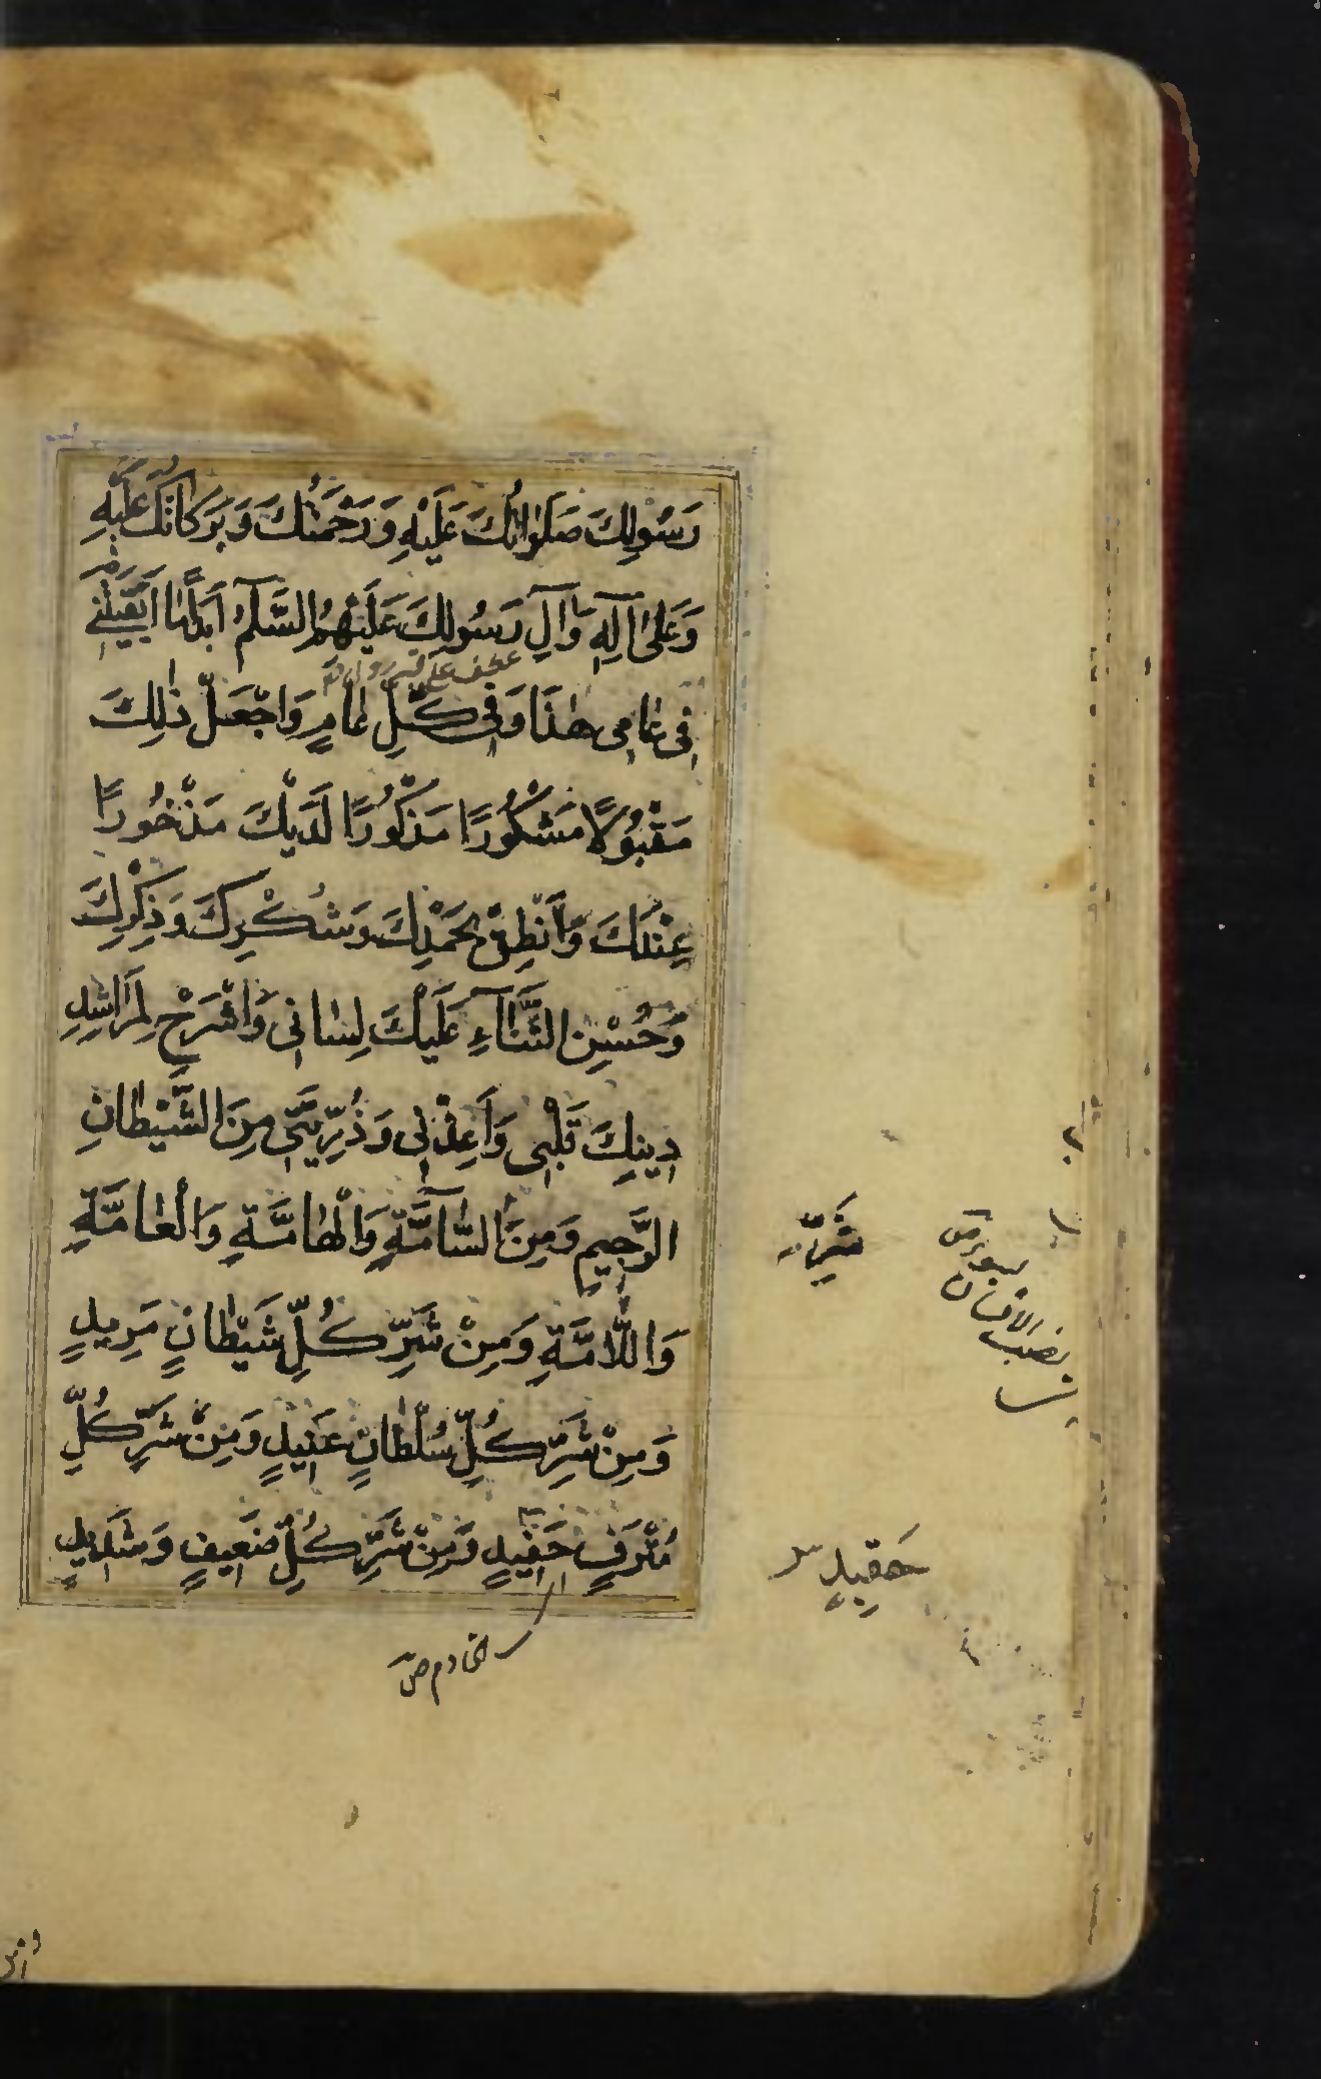 رَسُولِكَ صَلَوٰاتُكَ عَلَيْهِ وَرَحْمَتُكَ وَبَرَكاتُكَ عَلَيْهِ
وَعَلىٰ آلِهِ وَآلِ رَسُولِكَ عَلَيْهِمُ السَّلٰامُ اَبَدًا مٰا اَبْقَيْتَنِي
فِي عٰامِي هٰذَا وَفِي كُلِّ عٰامٍ وَاجْعَلْ ذٰلِكَ
مَقْبُولًا مَشْكُورًا مَذْكُورًا لَدَيْكَ مَذْخُورًا
عِنْدَكَ وَاَنْطِقْ بِحَمْدِكَ وَشُكْرِكَ وَذِكْرِكَ
وَحُسْنِ الثَّنٰآءِ عَلَيْكَ لِسٰانِي وَاشْرَحْ لِمَرٰاشِدِ
دِينِكَ قَلْبِي وَاَعِذْنِي وَذُرِّيَّتِي مِنَ الشَّيْطٰانِ
الرَّجِيمِ وَمِنَ السّٰآمَّةِ وَالْهٰامَّةِ وَالْعٰامَّةِ
وَاللّٰامَّةِ وَمِنْ شَرِّ كُلِّ شَيْطٰانٍ مَرِيدٍ
وَمِنْ شَرِّ كُلِّ سُلْطٰانٍ عَنِيدٍ وَمِنْ شَرِّ كُلِّ
مُتْرَفٍ حَفِيدٍ وَمِنْ شَرِّ كُلِّ ضَعِيفٍ وَشَدِيدٍ
شَرِّ
حَقِيدٍ